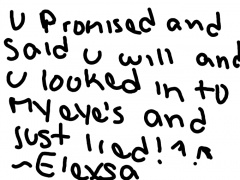 U Promised and
Said U will and
U looked in to
My eye's and
Just lied! ^.^
~Elexsa